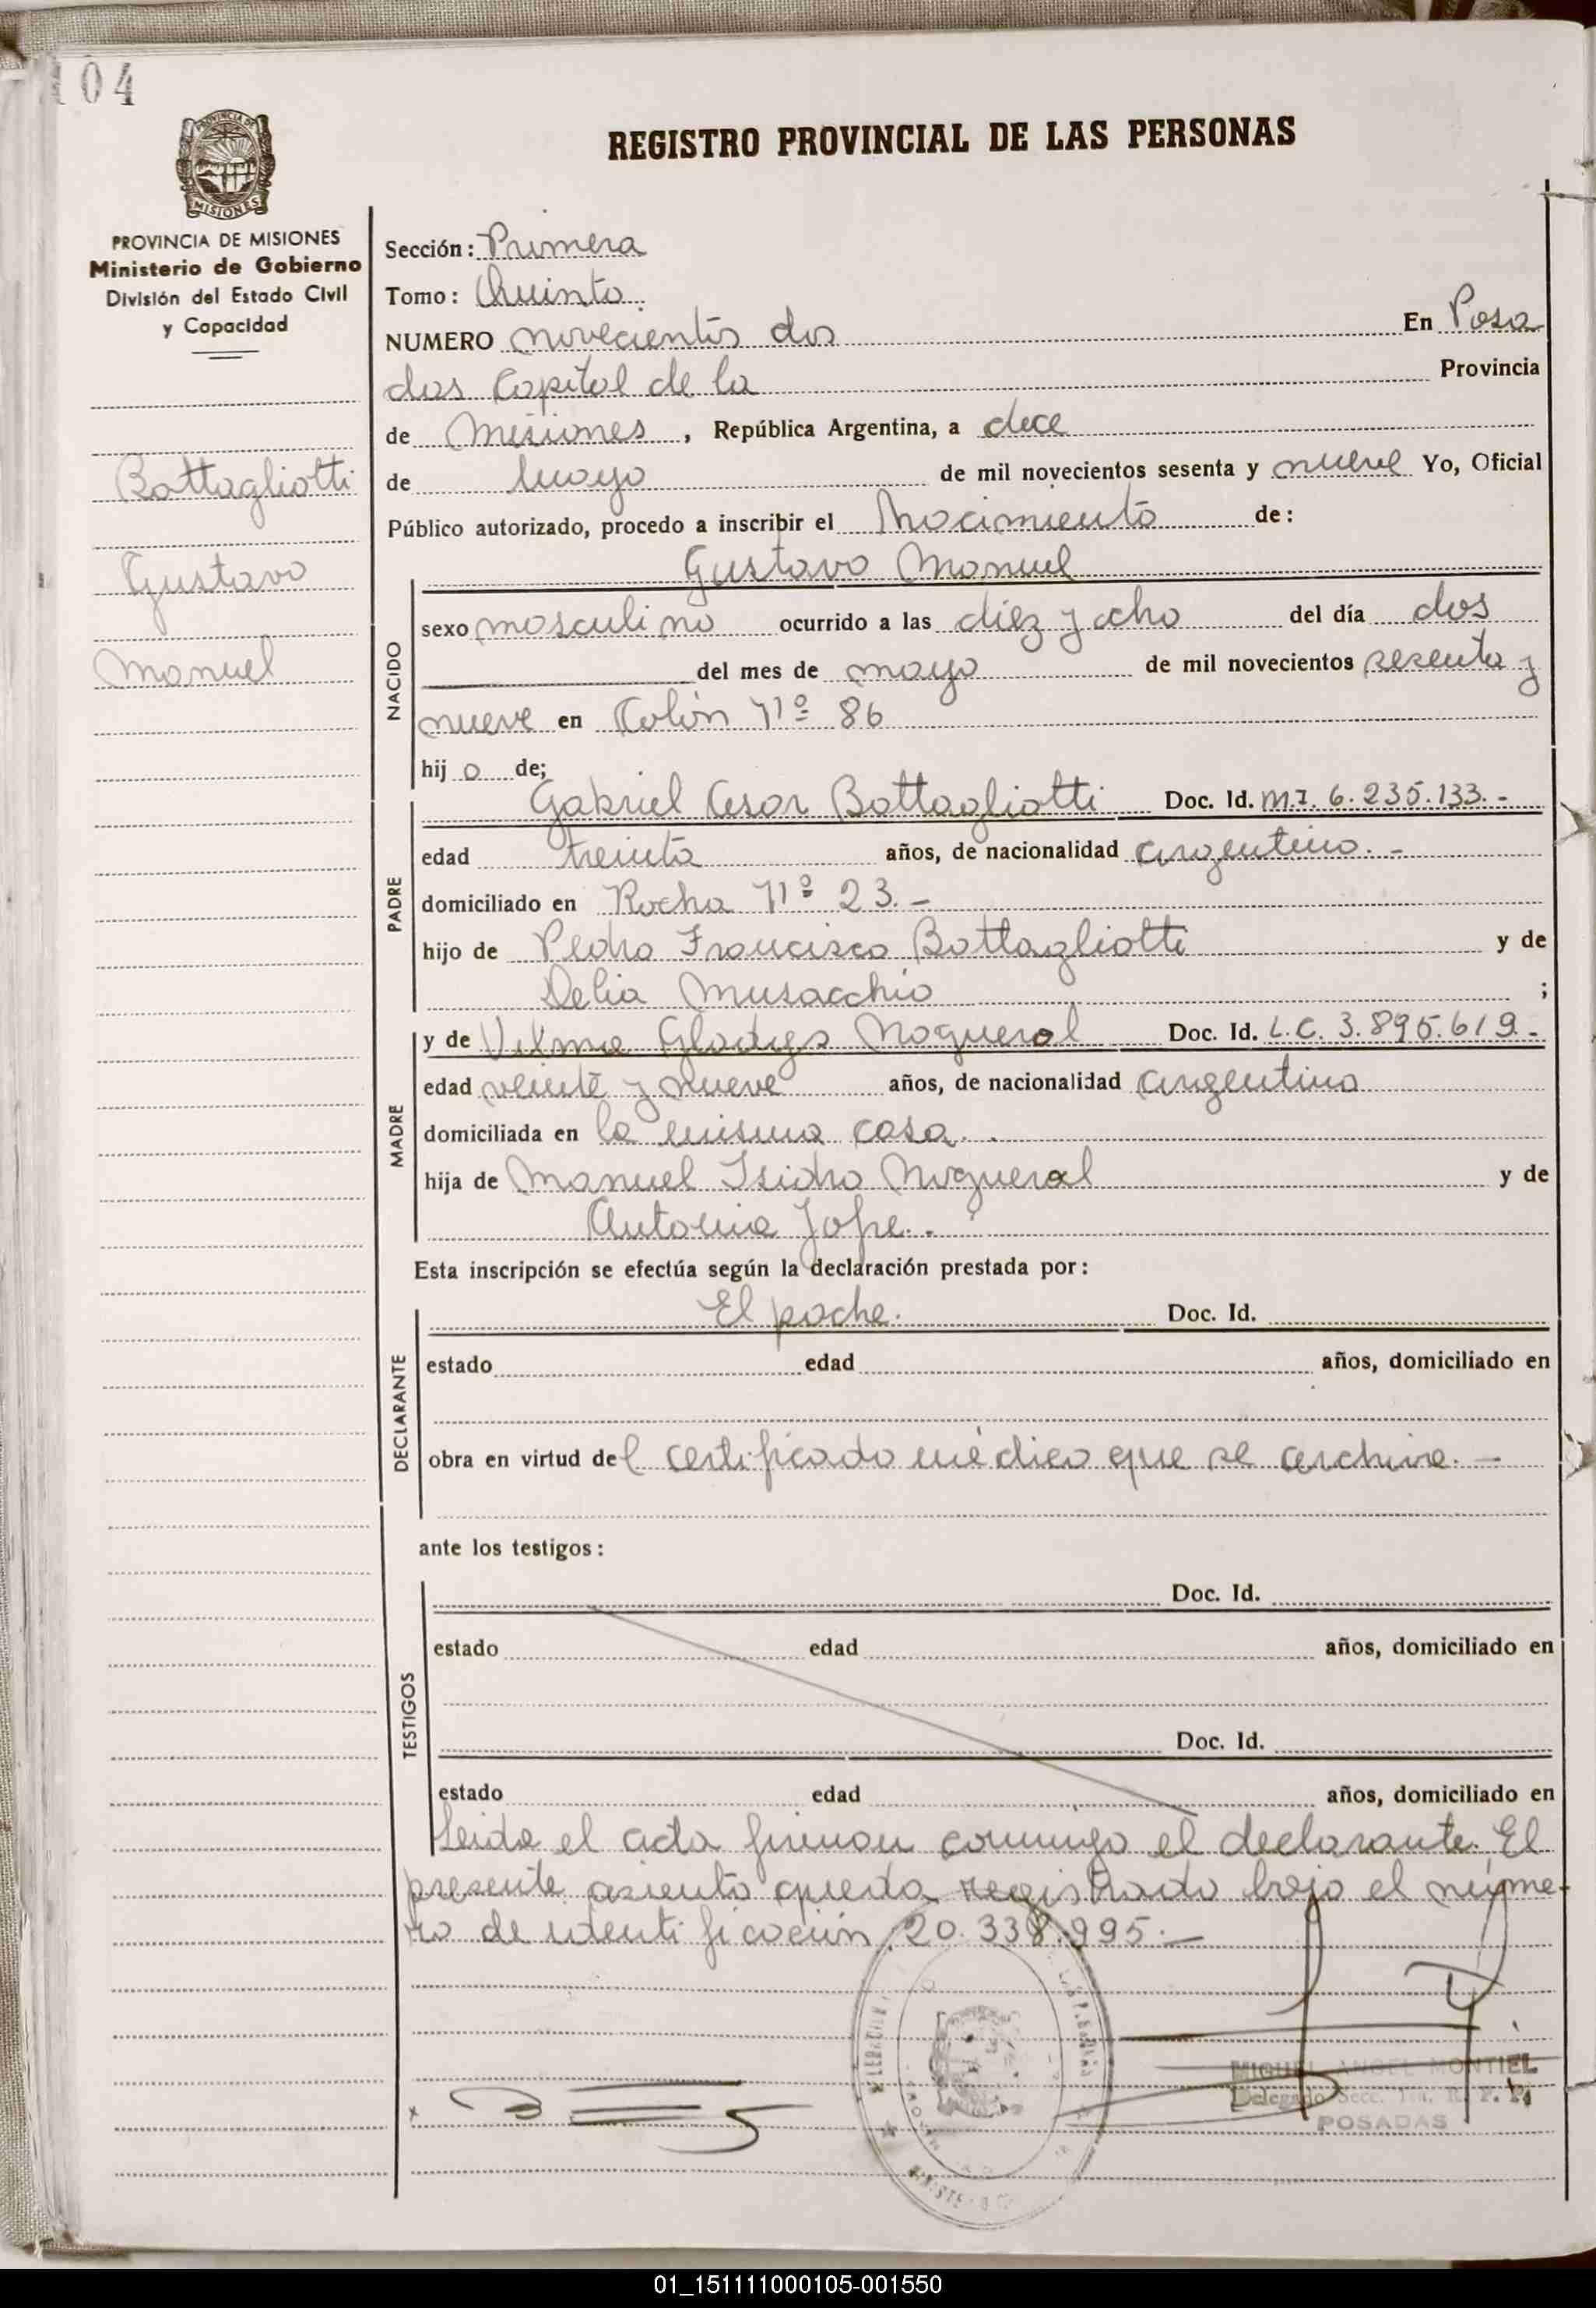 104
REGISTRO PROVINCIAL DE LAS PERSONAS
PROVINCIA DE
MISIONES
PROVINCIA DE MISIONES
Ministerio de Gobierno
División del Estado Civil
y Capacidad
Battagliotti
Gustavo
Manuel
Sección: Primera
Tomo: Quinto
NUMERO novecientos dos En Posa
das Capital de la Provincia
de Misiones, República Argentina, a doce
de Mayo de mil novecientos sesenta y nueve Yo, Oficial
Público autorizado, procedo a inscribir el Nacimiento de:
NACIDO
Gustavo Manuel
sexo masculino ocurrido a las diez y ocho del día dos
del mes de mayo de mil novecientos sesenta y
nueve en Colón Nº 86
hij o de;
PADRE
Gabriel Cesar Battagliotti Doc. Id. M.I. 6.235.133.-
edad treinta años, de nacionalidad argentino.-
domiciliado en Rocha Nº 23.-
hijo de Pedro Francisco Battagliotti y de
Delia Musacchio ;
MADRE
y de Vilma Gladys Nogueral Doc. Id. L.C. 3.895.619.-
edad veinte y nueve años, de nacionalidad argentina
domiciliada en la misma casa.
hija de Manuel Isidro Nogueral y de
Antonia
Esta inscripción se efectúa según la declaración prestada por:
DECLARANTE
El padre. Doc. Id.
estado edad años, domiciliado en
obra en virtud del certificado médico que se archiva.-
ante los testigos:
TESTIGOS
Doc. Id.
estado edad años, domiciliado en
Doc. Id.
estado edad años, domiciliado en
Leida el acta firman conmigo el declarante. El
presente asiento queda registrado bajo el núme-
ro de identificación 20.338.995.-
MIGUEL ANGEL MONTIEL
Delegado Secc. R. P. P.
POSADAS
01_151111000105-001550